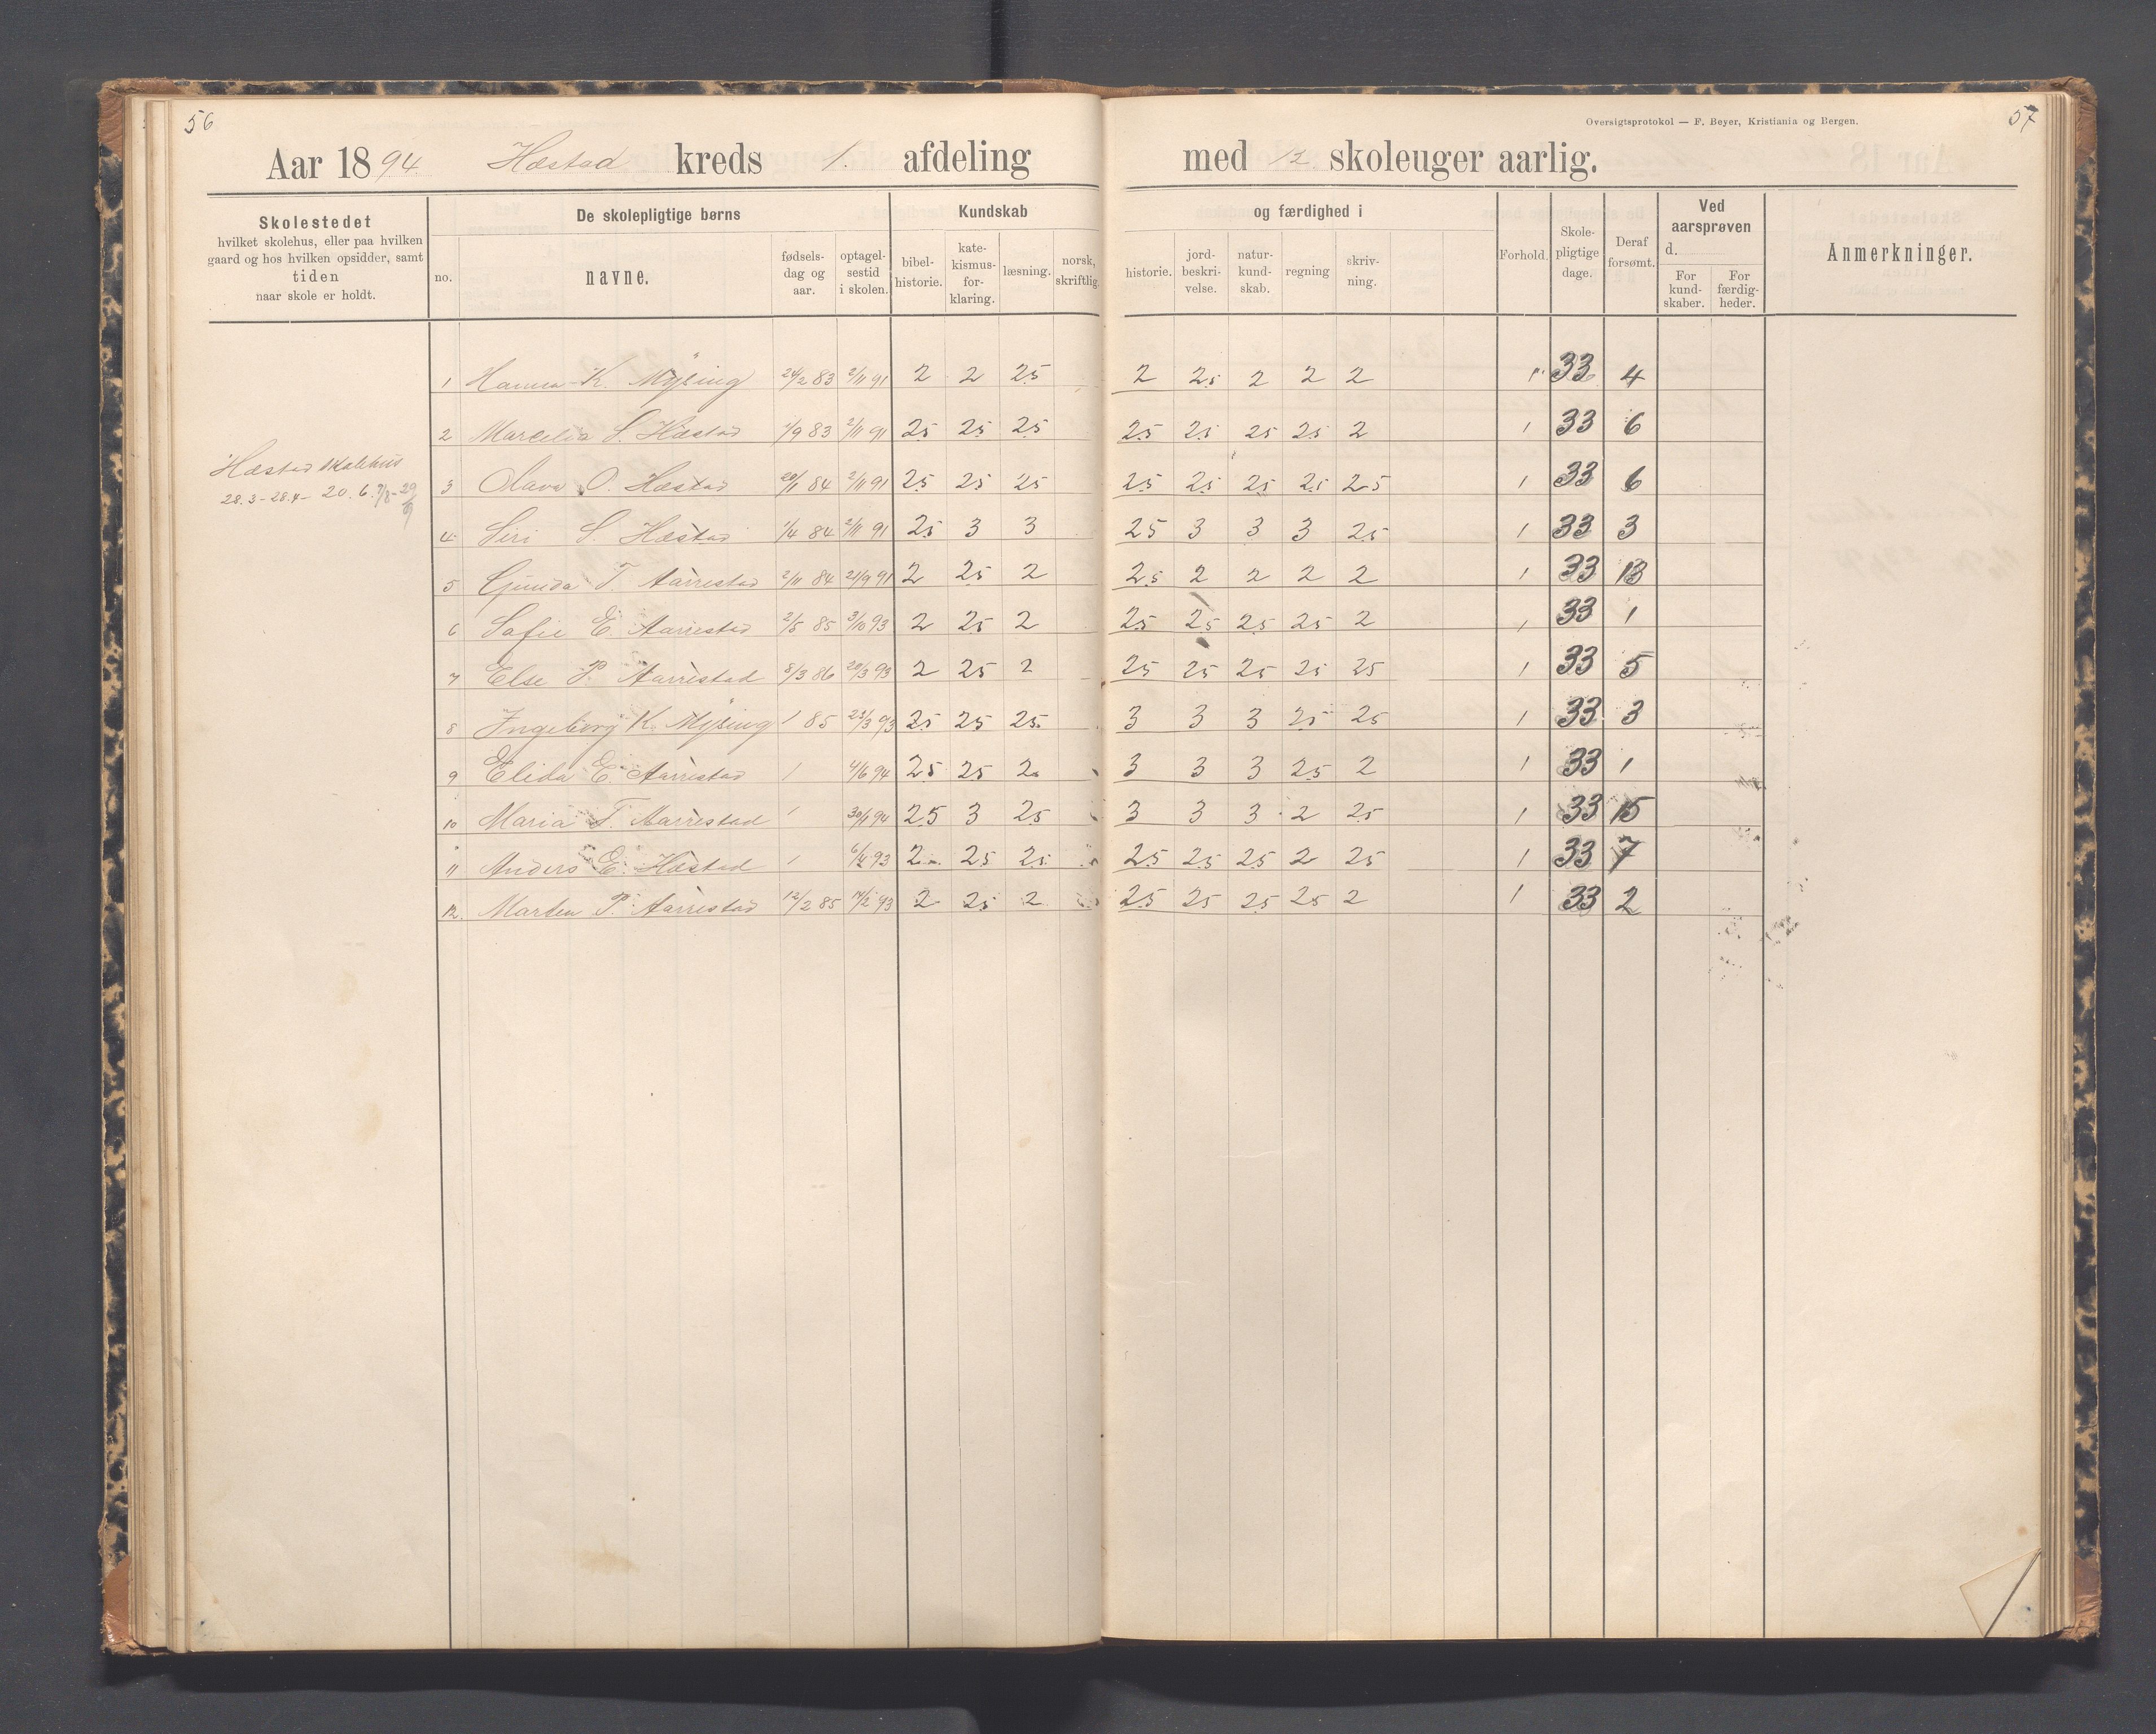 56
Oversigtsprotokol — F. Beyer, Kristiania og Bergen.
57
Aar 1894 Hæstad kreds 1. afdeling med 12 skoleuger aarlig.
Skolestedet
hvilket skolehus, eller paa hvilken
gaard og hos hvilken opsidder, samt
tiden
naar skole er holdt.
De skolepligtige børns
no.
navne.
fødsels-
dag og
aar.
optagel-
sestid
i skolen.
Kundskab
bibel-
historie.
kate-
kismus-
for-
klaring.
læsning.
norsk,
skriftlig.
og færdighed i
historie.
jord-
beskri-
velse.
natur-
kund-
skab.
regning
skriv-
ning.
Forhold.
Skole-
pligtige
dage.
Deraf
forsømt.
Ved
aarsprøven
d.
For
kund-
skaber.
For
færdig-
heder.
Anmerkninger.
Hæstad skolehus
28.3-28.4- 20.6. 7/8-29/9
1 Hanna K. Mÿsing 24/2 83 2/11 91 2 2 25 2 25 2 2 2 1 33 4
2 Marcelia S. Hæstad 1/9 83 2/11 91 25 25 25 25 25 25 25 2 1 33 6
3 Olava O. Hæstad 20/1 84 2/11 91 25 25 25 25 25 25 25 25 1 33 6
4 Siri S. Hæstad 1/4 84 2/11 91 25 3 3 25 3 3 3 25 1 33 3
5 Gunda T. Aarrestad 2/11 84 21/9 91 2 25 2 25 2 2 2 2 1 33 13
6 Sofie E. Aarrestad 2/5 85 3/10 93 2 25 2 25 25 25 25 2 1 33 1
7 Else P. Aarrestad 8/3 86 20/3 93 2 25 2 25 25 25 25 25 1 33 5
8 Ingeborg K. Mÿsing 1 85 25/3 93 25 25 25 3 3 3 25 25 1 33 3
9 Elida E. Aarrestad 1 4/6 94 25 25 2 3 3 3 25 2 1 33 1
10 Maria T. Aarrestad 1 30/1 94 25 3 25 3 3 3 2 25 1 33 15
11 Anders E. Hæstad 1 6/4 93 2 25 25 25 25 25 2 25 1 33 7
12. Marten P. Aarrestad 12/2 85 14/2 93 2 25 2 25 25 25 25 2 1 33 2